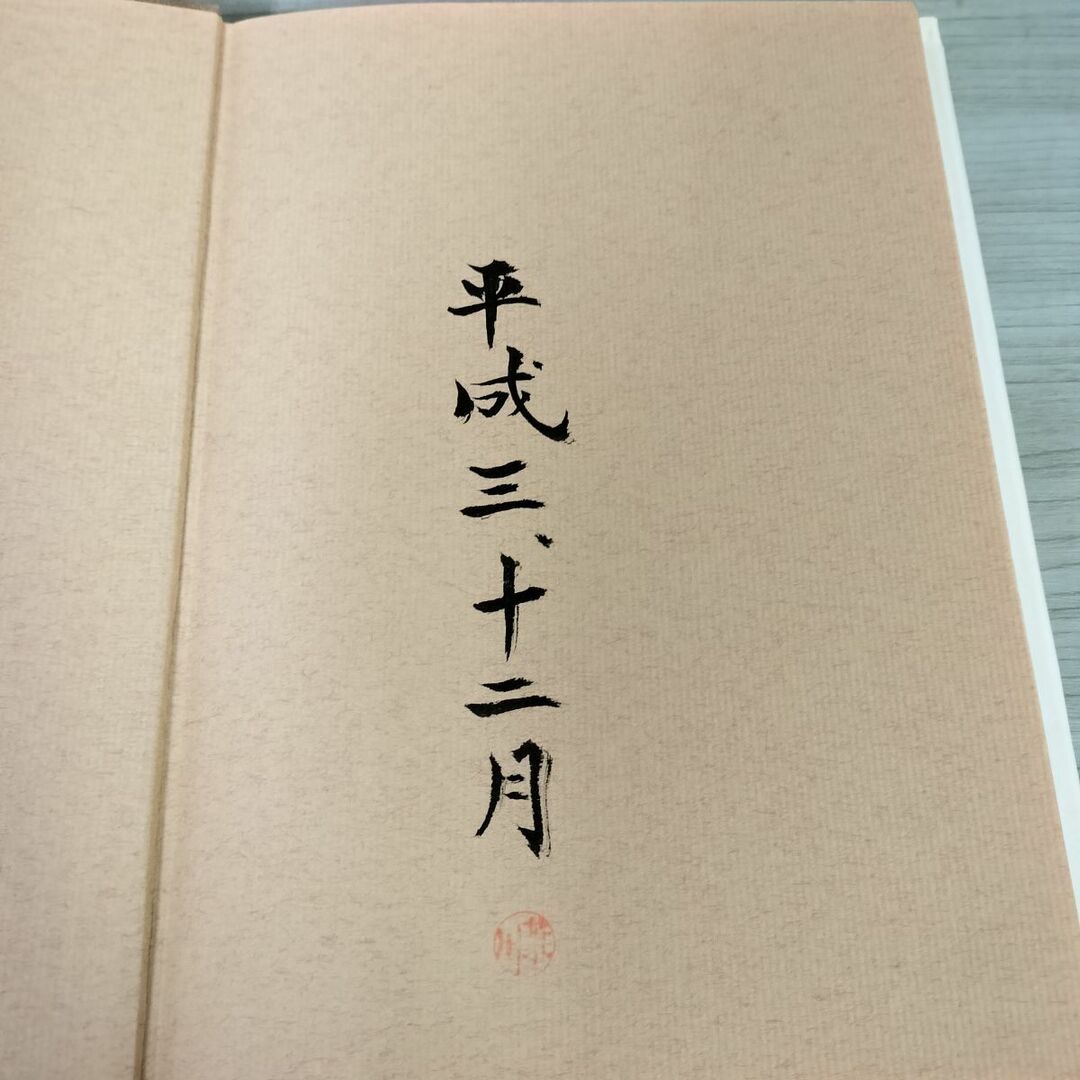 平成三、十二月